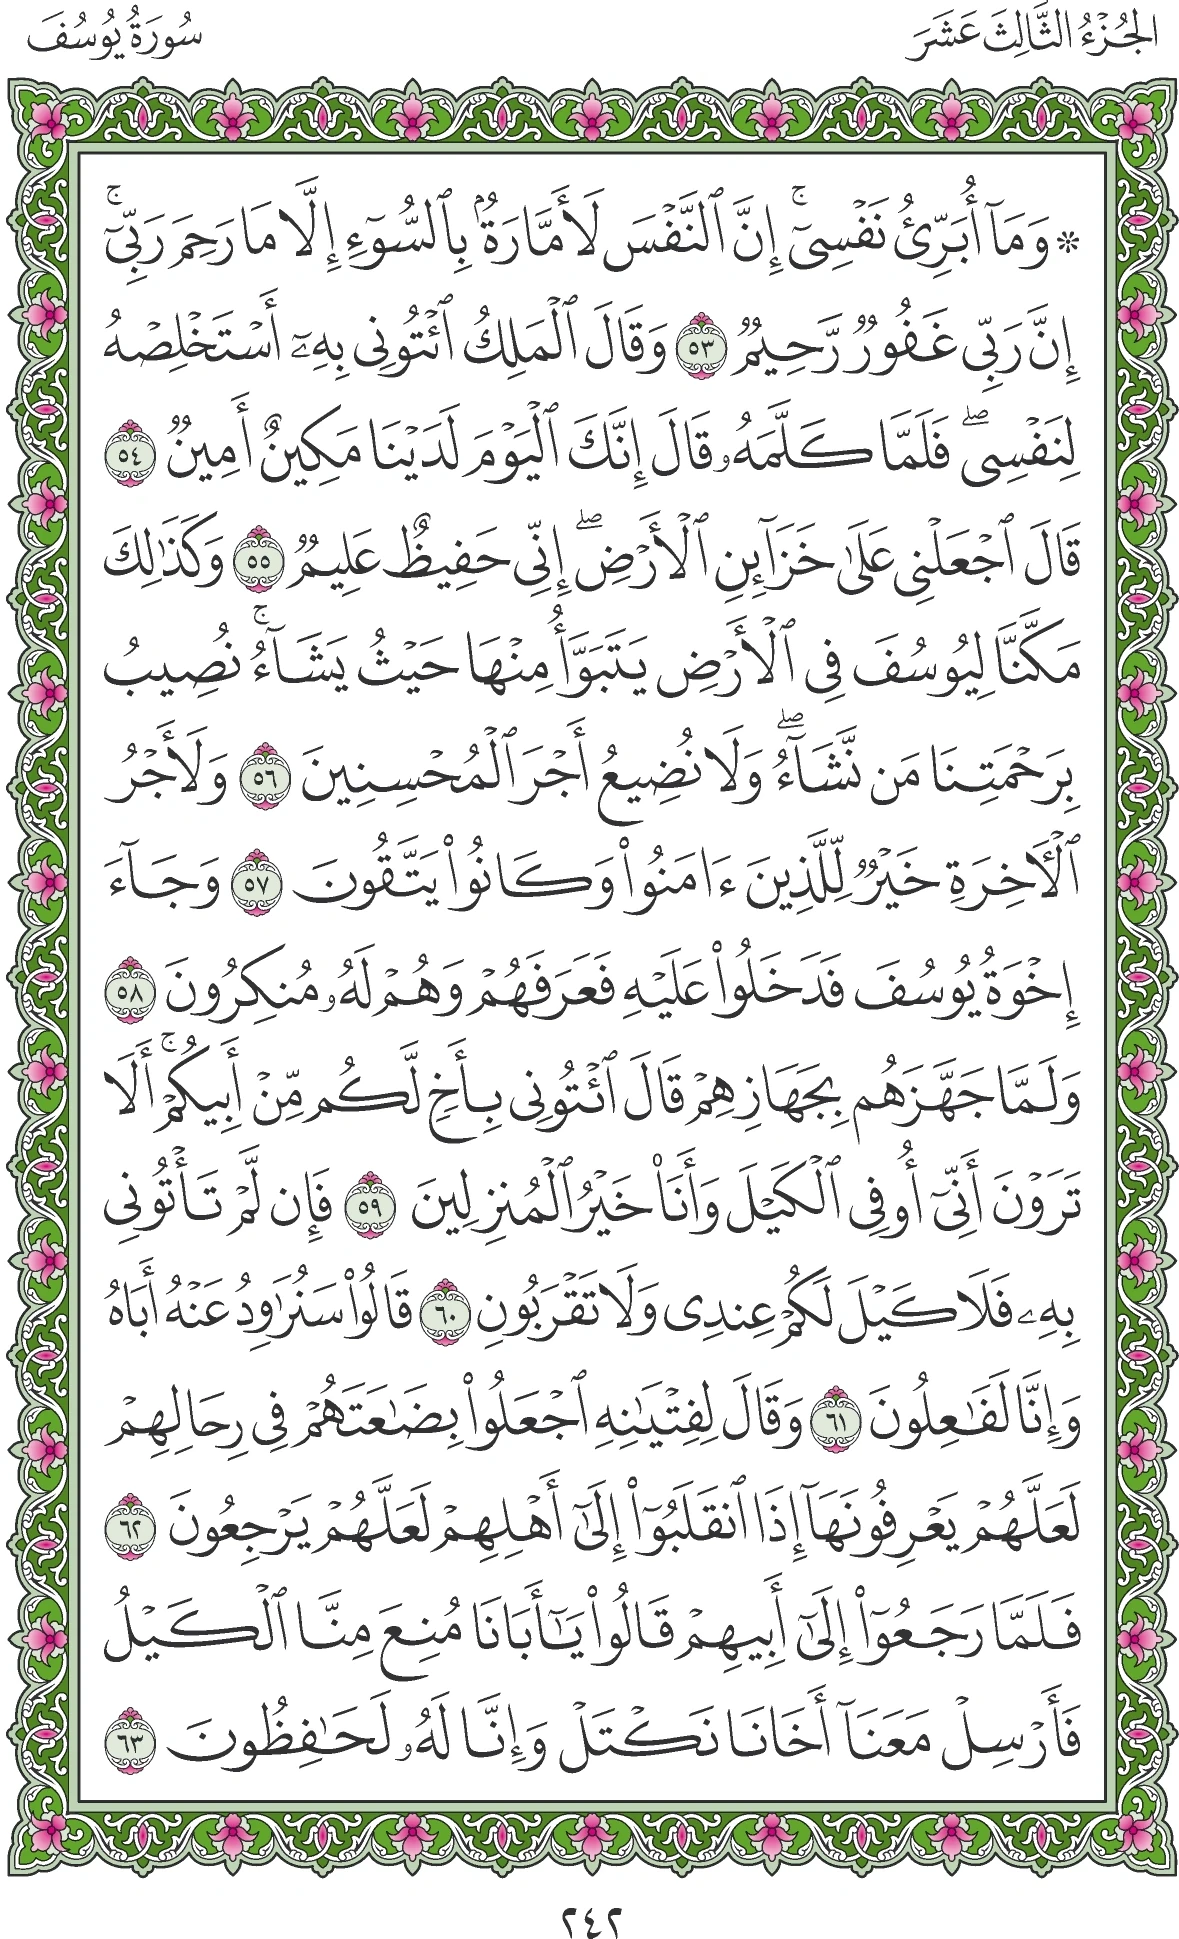 الجُزْءُ الثَّالِثَ عَشَرَ
سُورَةُ يُوسُفَ
۞ وَمَآ أُبَرِّئُ نَفْسِىٓ ۚ إِنَّ ٱلنَّفْسَ لَأَمَّارَةٌۢ بِٱلسُّوٓءِ إِلَّا مَا رَحِمَ رَبِّىٓ ۚ
إِنَّ رَبِّى غَفُورٌ رَّحِيمٌ ٥٣ وَقَالَ ٱلْمَلِكُ ٱئْتُونِى بِهِۦٓ أَسْتَخْلِصْهُ
لِنَفْسِى ۖ فَلَمَّا كَلَّمَهُۥ قَالَ إِنَّكَ ٱلْيَوْمَ لَدَيْنَا مَكِينٌ أَمِينٌ ٥٤
قَالَ ٱجْعَلْنِى عَلَىٰ خَزَآئِنِ ٱلْأَرْضِ ۖ إِنِّى حَفِيظٌ عَلِيمٌ ٥٥ وَكَذَٰلِكَ
مَكَّنَّا لِيُوسُفَ فِى ٱلْأَرْضِ يَتَبَوَّأُ مِنْهَا حَيْثُ يَشَآءُ ۚ نُصِيبُ
بِرَحْمَتِنَا مَن نَّشَآءُ ۖ وَلَا نُضِيعُ أَجْرَ ٱلْمُحْسِنِينَ ٥٦ وَلَأَجْرُ
ٱلْأَخِرَةِ خَيْرٌ لِّلَّذِينَ ءَامَنُوا۟ وَكَانُوا۟ يَتَّقُونَ ٥٧ وَجَآءَ
إِخْوَةُ يُوسُفَ فَدَخَلُوا۟ عَلَيْهِ فَعَرَفَهُمْ وَهُمْ لَهُۥ مُنكِرُونَ ٥٨
وَلَمَّا جَهَّزَهُم بِجَهَازِهِمْ قَالَ ٱئْتُونِى بِأَخٍ لَّكُم مِّنْ أَبِيكُمْ ۚ أَلَا
تَرَوْنَ أَنِّىٓ أُوفِى ٱلْكَيْلَ وَأَنَا۠ خَيْرُ ٱلْمُنزِلِينَ ٥٩ فَإِن لَّمْ تَأْتُونِى
بِهِۦ فَلَا كَيْلَ لَكُمْ عِندِى وَلَا تَقْرَبُونِ ٦٠ قَالُوا۟ سَنُرَٰوِدُ عَنْهُ أَبَاهُ
وَإِنَّا لَفَٰعِلُونَ ٦١ وَقَالَ لِفِتْيَٰنِهِ ٱجْعَلُوا۟ بِضَٰعَتَهُمْ فِى رِحَالِهِمْ
لَعَلَّهُمْ يَعْرِفُونَهَآ إِذَا ٱنقَلَبُوٓا۟ إِلَىٰٓ أَهْلِهِمْ لَعَلَّهُمْ يَرْجِعُونَ ٦٢
فَلَمَّا رَجَعُوٓا۟ إِلَىٰٓ أَبِيهِمْ قَالُوا۟ يَٰٓأَبَانَا مُنِعَ مِنَّا ٱلْكَيْلُ
فَأَرْسِلْ مَعَنَآ أَخَانَا نَكْتَلْ وَإِنَّا لَهُۥ لَحَٰفِظُونَ ٦٣
٢٤٢